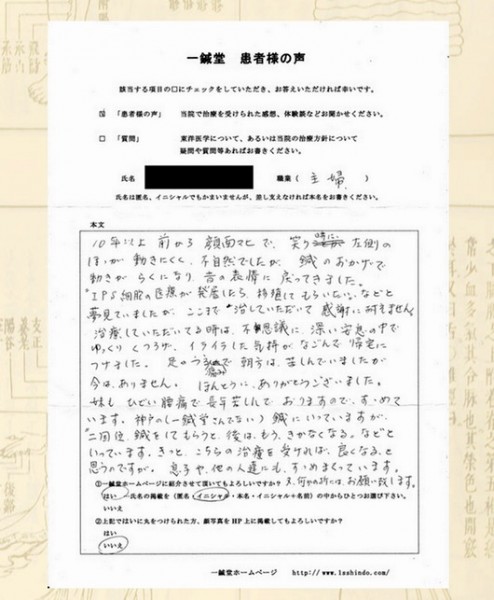 一鍼堂 患者様の声
該当する項目の口にチェックをしていただき、お答えいただければ幸いです。
☑ 「患者様の声」 当院で治療を受けられた感想、体験談などお聞かせください。
□ 「質問」 東洋医学について、あるいは当院の治療方針について
疑問や質問等あればお書きください。
氏名 職業( 主婦 )
氏名は匿名、イニシャルでもかまいませんが、差し支えなければ本名をお書きください。
本文
10年以上前から 顔面マヒで、笑う時に 左側の
ほほが動きにくく、不自然でしたが、鍼のおかげで
動きが らくになり、昔の表情に 戻ってきました。
IPS細胞の医療が発展したら、移植してもらいたい、などと
夢見ていましたが、ここまで 治していただいて 感謝に 耐えません
治療していただいてる時は、不思議に、深い安息の中で
ゆっくり くつろげ、イライラした気持が なごんで 帰宅に
つけました。 足の 痛みで 朝方は、苦しんでいましたが
今は、ありません。 ほんとうに、ありがとうございました。
妹も ひどい腰痛で 長年苦しんで おりますので、すゝめて
います。神戸の(一鍼堂さんでない)鍼に いっていますが、
"二回位、鍼をしてもらうと、後は、もう、きかなくなる。などと
いっています。きっと、こちらの治療を受ければ、良くなる、と
思うのですが。 息子や、他の人達にも、すゝめまくっています。
又、何かの折には、お願い致します。
①一鍼堂ホームページに紹介させて頂いてもよろしいですか?
はい 氏名の掲載を(匿名・イニシャル・本名・イニシャル+名前)の中からひとつお選び下さい。
いいえ
②上記ではいに丸をつけられた方、顔写真を HP 上に掲載してもよろしいですか?
はい
いいえ
一鍼堂ホームページ http://www.1sshindo.com/